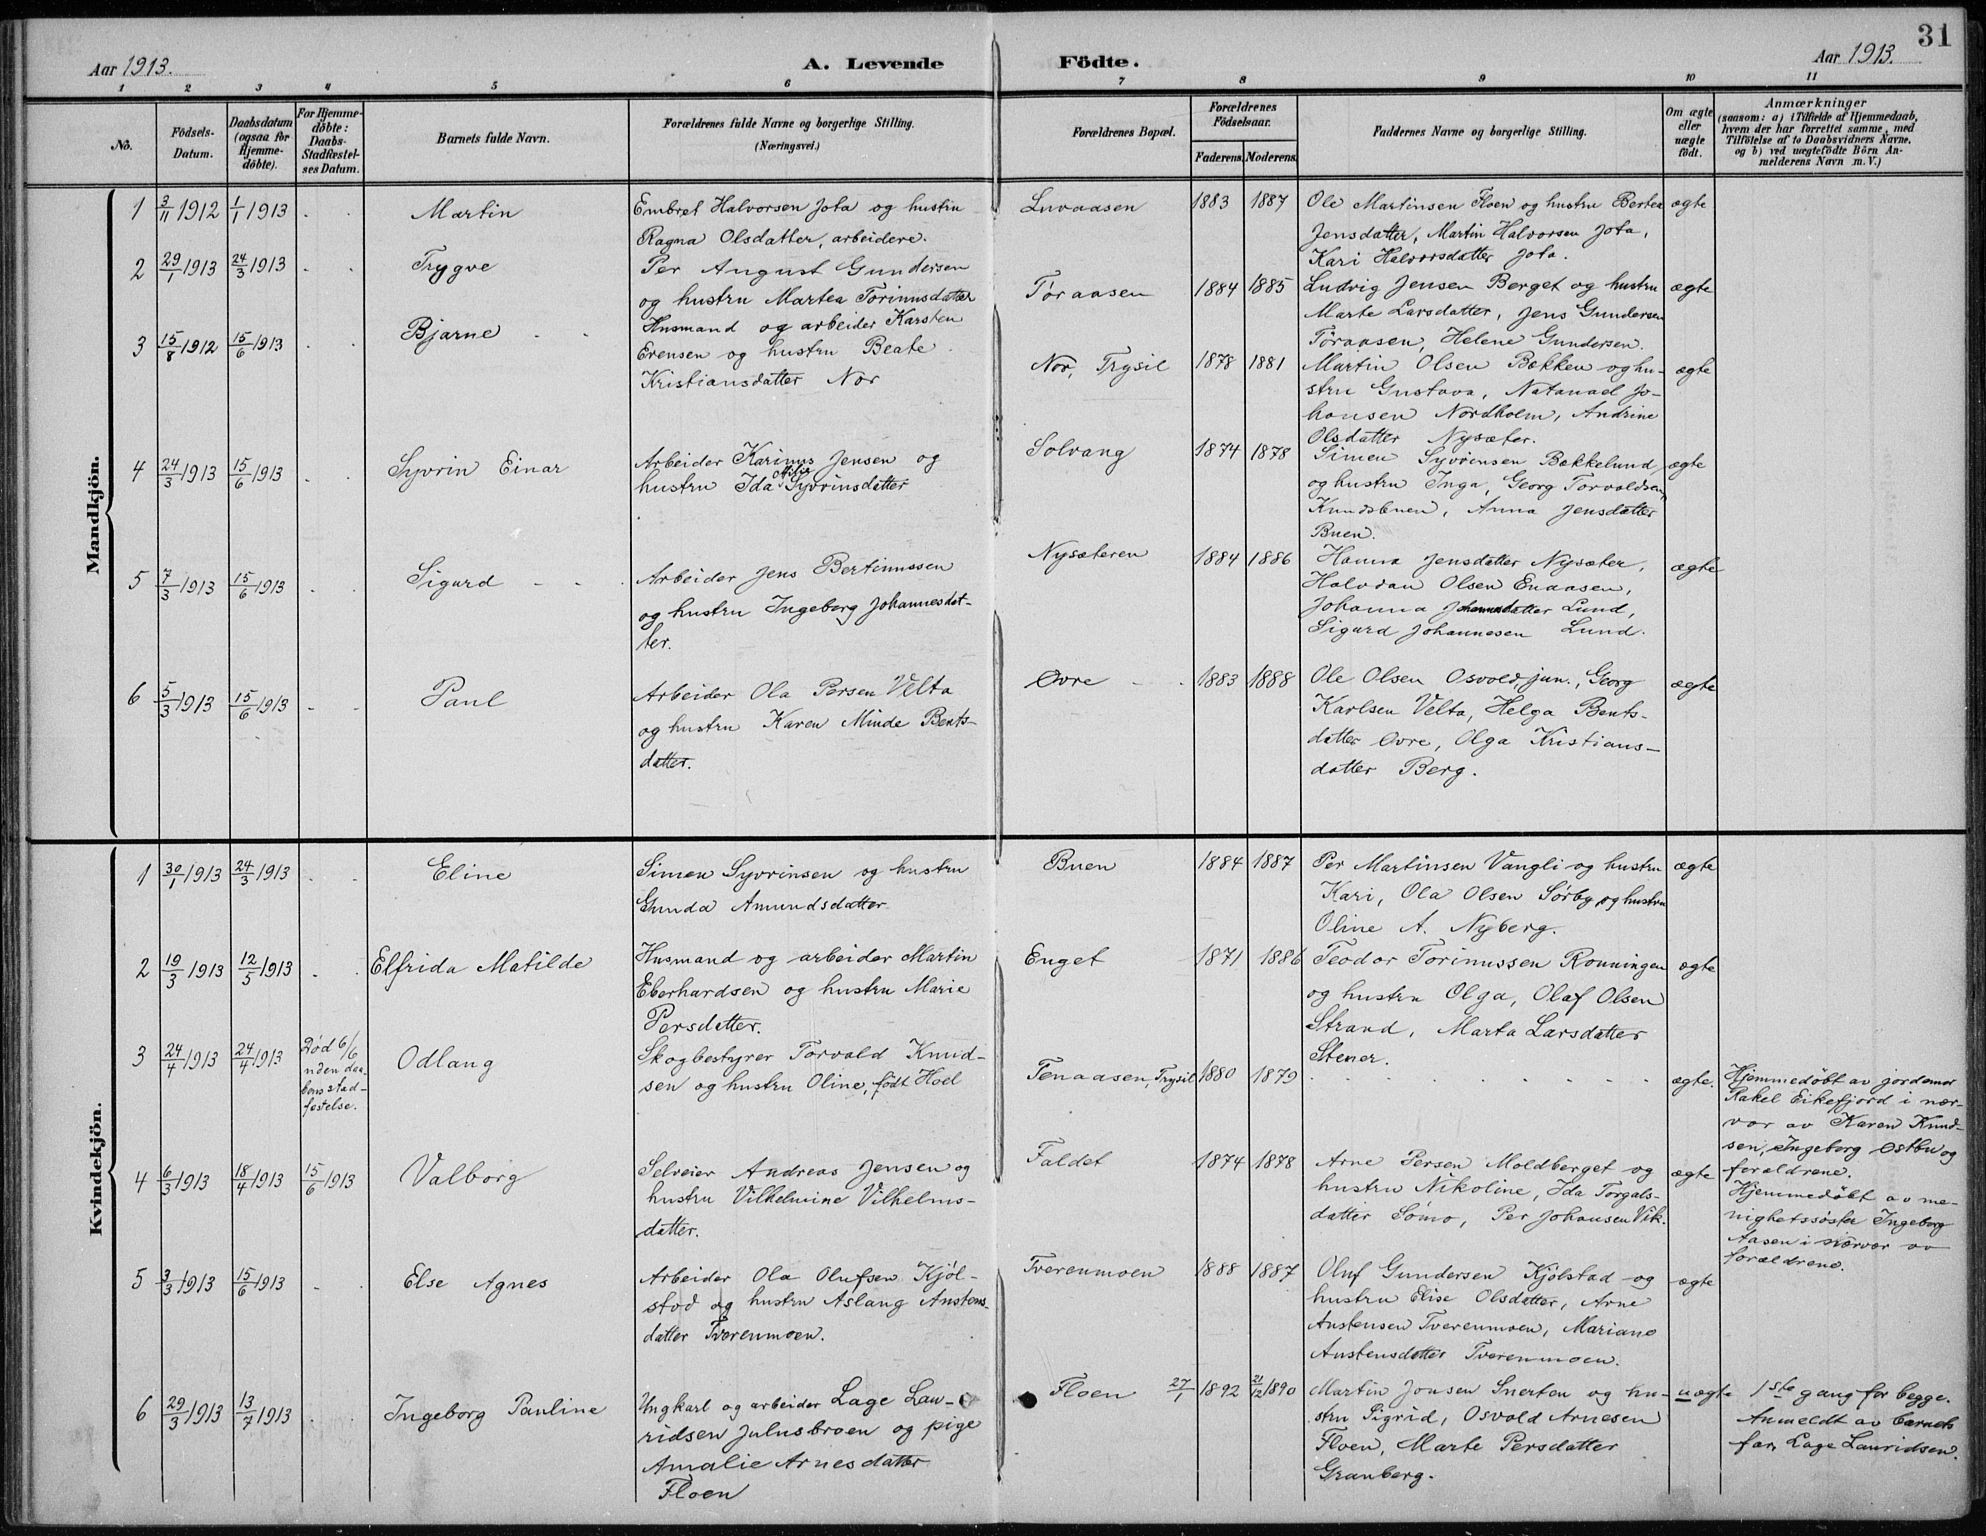 31
Aar 1913. A. Levende Födte. Aar 1913.
1 2 3 4 5 6 7 8 9 10 11
No.
Födsels-
Datum.
Daabsdatum
(ogsaa for
Hjemme-
döbte).
For Hjemme-
döbte:
Daabs-
Stadfæstel-
ses Datum.
Barnets fulde Navn.
Forældrenes fulde Navne og borgerlige Stilling.
(Næringsvei.)
Forældrenes Bopæl.
Forældrenes
Födselsaar.
Faderens. Moderens.
Faddernes Navne og borgerlige Stilling.
Om ægte
eller
uægte
født.
Anmærkninger
(saasom: a) i Tilfælde af Hjemmedaab,
hvem der har forrettet samme, med
Tilföielse af to Daabsvidners Navne,
og b) ved uægtefödte Börn An-
melderens Navn m. V.)
Mandkjön.
1 3/11 1912 1/1 1913 Martin
Embret Halvorsen Jota og hustru
Ragna Olsdatter, arbeidere.
Luvaasen 1883 1887
Ole Martinsen Floen og hustru Bertea
Jensdatter, Martin Halvorsen Jota,
Kari Halvorsdatter Jota.
ægte
2 29/1 1913 24/3 1913 Trygve
Per August Gundersen
og hustru Martea Torinusdatter
Tøraasen 1884 1885
Ludvig Jensen Berget og hustru
Marte Larsdatter, Jens Gundersen
Tøraasen, Helene Gundersen.
ægte
3 15/8 1912 15/6 1913 Bjarne
Husmand og arbeider Karsten
Erensen og hustru Beate
Kristiansdatter Nor
Nor, Trysil 1878 1881
Martin Olsen Bækken og hu-
stru Gustava, Natanael Jo-
hansen Nordholm, Andrine
Olsdatter Nysæter.
ægte
4 24/3 1913 15/6 1913 Syvrin Einar
Arbeider Karinus Jensen og
hustru Ida Syvrinsdatter
Solvang 1874 1878
Simen Syvrinsen Bækkelund
og hustru Inga, Georg Torvaldsen
Knudsbuen, Anna Jensdatter
Buen.
ægte
5 7/3 1913 15/6 1913 Sigurd
Arbeider Jens Bertinussen
og hustru Ingeborg Johannesdat-
ter.
Nysæteren 1884 1886
Hanna Jensdatter Nysæter,
Halvdan Olsen Enaasen,
Johanna Johannesdatter Lund,
Sigurd Johannesen Lund.
ægte
6 5/3 1913 15/6 1913 Paul
Arbeider Ola Persen Velta
og hustru Karen Minde Bents-
datter.
Øvre 1883 1888
Ole Olsen Osvold, jun., Georg
Karlsen Velta, Helga Bents-
datter Øvre, Olga Kristians-
datter Berg.
ægte
Kvindekjön.
1 30/1 1913 24/3 1913 Eline
Simen Syvrinsen og hustru
Gunda Amundsdatter
Buen 1884 1887
Per Martinsen Vangli og hustru
Kari, Ola Olsen Sørby, og hustru
Oline A. Nyberg.
ægte
2 19/3 1913 12/5 1913 Elfrida Matilde
Husmand og arbeider Martin
Eberhardsen og hustru Marie
Persdatter.
Enget 1871 1886
Teodor Torinussen Rønningen
og hustru Olga, Olaf Olsen
Strand, Marta Larsdatter
Stener.
ægte
3 24/4 1913 24/4 1913
Død 6/6
uden daa-
bens stad-
festelse.
Odlaug
Skogbestyrer Torvald Knud-
sen og hustru Oline, født Hoel
Tenaasen, Trysil 1880 1879
ægte.
Hjemmedøbt av jordemor
Rakel Eikefjord i nær-
vær av Karen Knud-
sen, Ingeborg Østbu og
forældrene.
4 6/3 1913 18/4 1913 15/6 1913 Valborg
Selveier Andreas Jensen og
hustru Vilhelmine Vilhelms-
datter.
Faldet 1874 1878
Arne Persen Moldberget og
hustru Nikoline, Ida Torgals-
datter Sømo, Per Johansen Vik.
ægte
Hjemmedøbt av me-
nighetssøster Ingeborg
Aasen i nærvær av
forældrene.
5 3/3 1913 15/6 1913 Else Agnes
Arbeider Ola Olufsen Kjøl-
stad og hustru Aslaug Austens-
datter Tverenmoen.
Tverenmoen 1888 1887
Oluf Gundersen Kjølstad og
hustru Elise Olsdatter, Arne
Austensen Tverenmoen, Mariane
Austensdatter Tverenmoen.
ægte
6 29/3 1913 13/7 1913 Ingeborg Pauline
Ungkarl og arbeider Lage Lau-
ridsen Julusbroen og pige
Amalie Arnesdatter
Floen
Floen 27/1 1892 21/12 1890
Martin Jonsen Snerten og hu-
stru Sigrid, Osvald Arnesen
Floen, Marte Persdatter
Granberg.
uægte
1ste gang for begge.
Anmeldt av barnets
far, Lage Lauridsen.